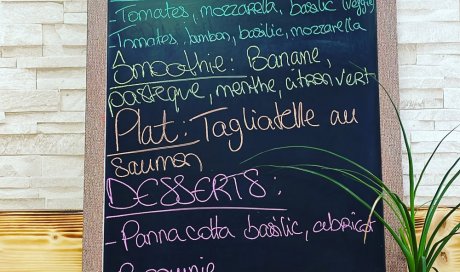 - Tomates, mozzarella, basilic (veggie)
- Tomates, jambon, basilic, mozzarella
Smoothie: Banane,
pastèque, menthe, citron vert
Plat: Tagliatelle au
saumon
DESSERTS:
- Pannacotta basilic, abricot
Brownie